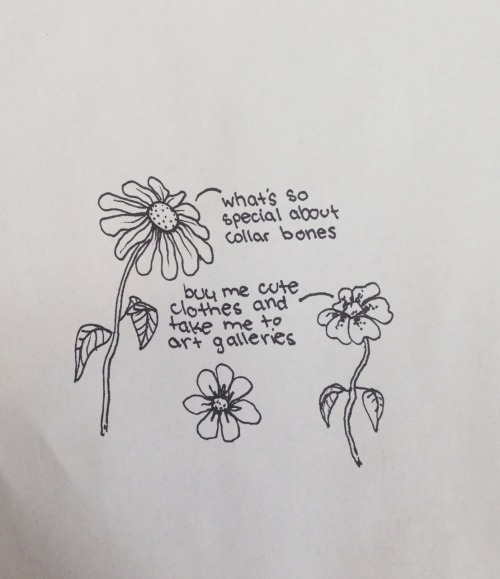 what's so
special about
collar bones
buy me cute
clothes and
take me to
art galleries